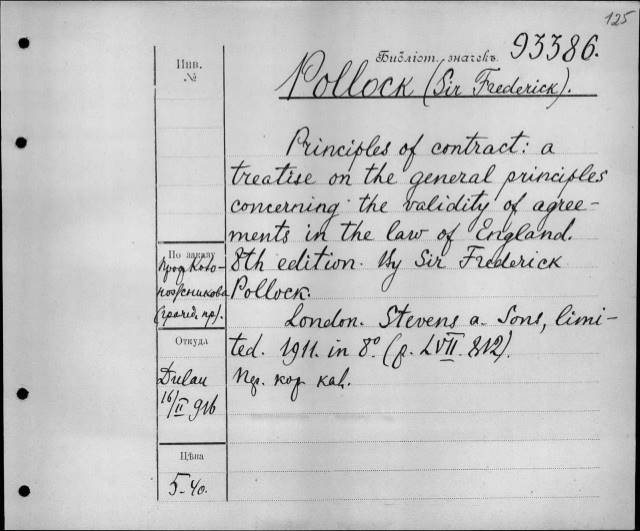 125
Библіот. значекъ 93386.
Инв.
№
Pollock (Sir Frederick).
Principles of contract: a
treatise on the general principles
concerning the validity of agree-
ments in the law of England.
8th edition. By Sir Frederick
Pollock.
London. Stevens a. Sons, limi-
ted. 1911. in 8º (p. LVII. 812).
По заказу
проф.
(гражд. пр).
Откуда
Dulau
16/II 916
Цѣна
5-40.